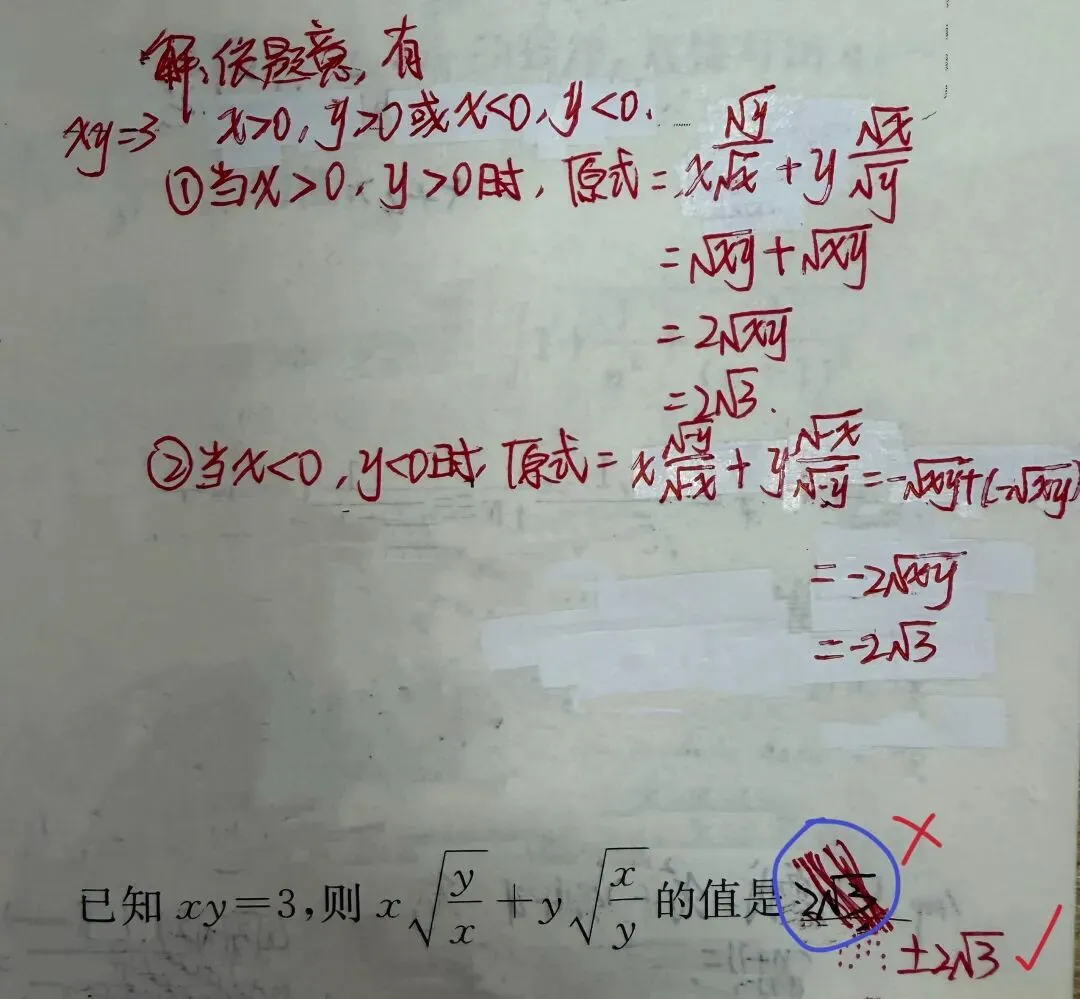 解:依题意,有
xy=3 x>0,y>0或x<0,y<0.
①当x>0,y>0时,原式=x√y/√x+y√x/√y
=√xy+√xy
=2√xy
=2√3.
②当x<0,y<0时,原式=x√-y/√-x+y√-x/√-y=-√xy+(-√xy)
=-2√xy
=-2√3
已知xy=3,则x√(y/x)+y√(x/y)的值是2√3
±2√3